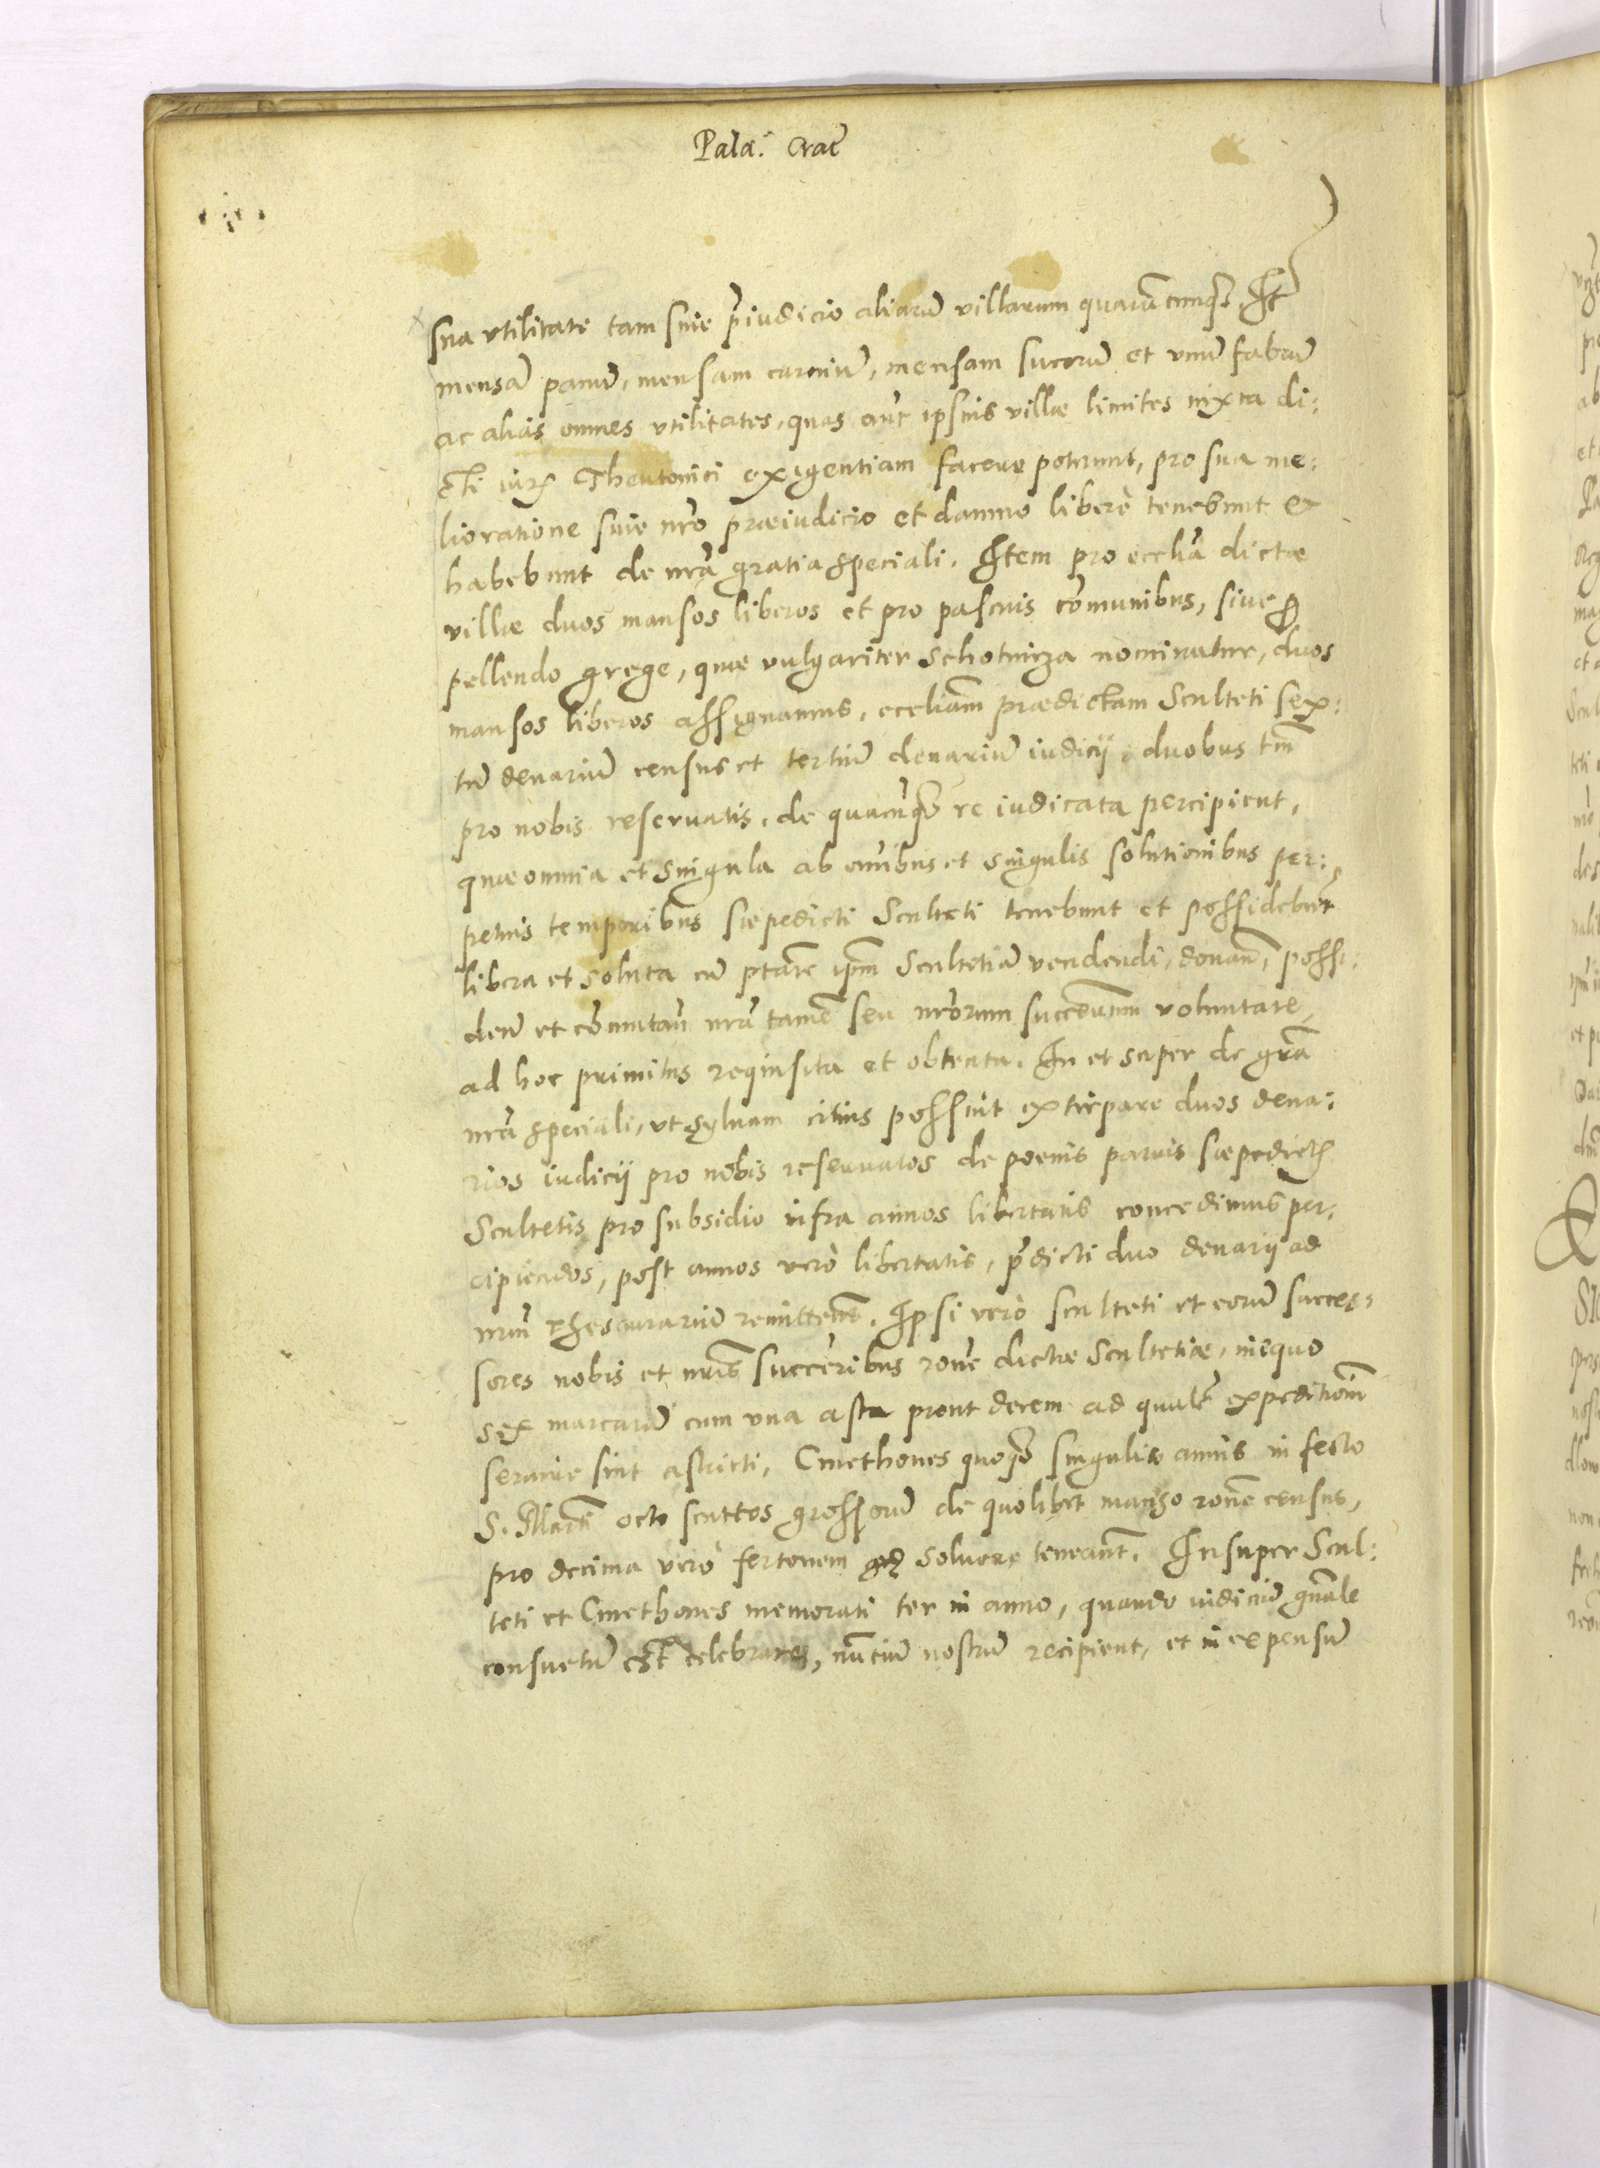 Pala: Crac̄
sua vtilitate tam sine p̄iudicio aliarū villarum quarūcunq₃ Itē
mensā panū, mensam carniū, mensam sutorū et vnū fabrū
ac alias omnes vtilitates, quas aūt ipsius villae limites iuxta di:
cti iurꝭ Theutonici exigentiam facere poterunt, pro sua me:
lioratione sine nr̄o praeiudicio et damno liberè tenebunt et
habebunt de nr̄a gratia speciali. Item pro eccliā dictae
villae duos mansos liberos et pro pascuis cōmunibus, siue ꝓ
pellendo grege, quae vulgariter Schotnicza nominatur, duos
mansos liberos assignamus, eccliam̄ praedictam Sculteti sex:
tū denariū census et tertiū denariū iudicij, duobus tm̄
pro nobis reseruatis, de quacūq₃ re iudicata percipient,
quae omnia et singula ab omībus et singulis solutionibus per:
petuis temporibus saepedicti Sculteti tenebunt et possidebūt
libera et soluta cū ptāte ipm̄ Scultetiā vendendi, donan̄, possi:
den̄ et cōmutan̄ nr̄a tamē seu nr̄orum succeorum̄ voluntate,
ad hoc primitus requisita et obtenta. In et super de gr̄a
nr̄a speciali, vt syluam citius possint extirpare duos dena:
rios iudicij pro nobis reseruatos de poenis paruis saepedictꝭ
Scultetis pro subsidio infra annos libertatis concedimus per:
cipiendos, post annos verò libertatis, p̄dicti duo denarij ad
nr̄m thesaurariū remittent̄. Ipsi verò sculteti et eorū succes:
sores nobis et nr̄is succeribus̄ rōne dictae Scultetiae, in equo
sex marcarū cum vna asta prout decem ad qualēt expeditionem̄
seruire sint astricti, Cmethones quoq₃ singulis annis in festo
S. Martī octo scuttos grossorū de quolibet manso rōne census,
pro decima verò fertonem soluere teneant̄. Insuper Scul:
teti et Cmethones memorati ter in anno, quando iudiciū gn̄ale
consuetū est celebrares, nūtiū nostrū recipient, et in expensū